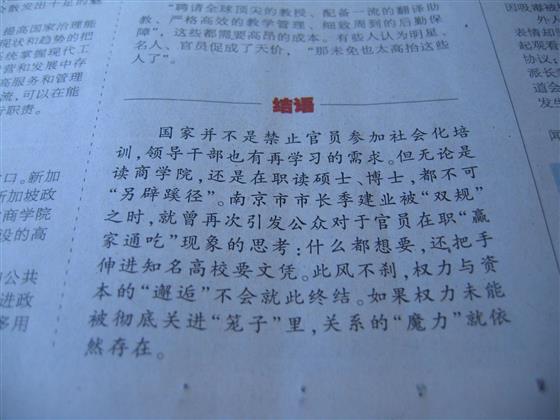 “聘请全球顶尖的教授、配备一流的翻译助
教、严格高效的教学管理、细致周到的后勤保
障”，这些都需要高昂的成本。有些人认为明星、
名人、官员促成了天价，“那未免也太高抬这些
人了”。
结语
国家并不是禁止官员参加社会化培
训，领导干部也有再学习的需求。但无论是
读商学院，还是在职读硕士、博士，都不可
“另辟蹊径”。南京市市长季建业被“双规”
之时，就曾再次引发公众对于官员在职“赢
家通吃”现象的思考：什么都想要，还把手
伸进知名高校要文凭。此风不刹，权力与资
本的“邂逅”不会就此终结。如果权力未能
被彻底关进“笼子”里，关系的“魔力”就依
然存在。
提高国家治理能
现状和趋势的把
系统掌握现代工
营和发展中存
高服务和管理
流，可以在能
行职责。
口。新加
新加坡政
商学院
设的高
的公共
进政
移用
因吸毒
表情超
起观看
协议；
长杨
道会
发生
闻